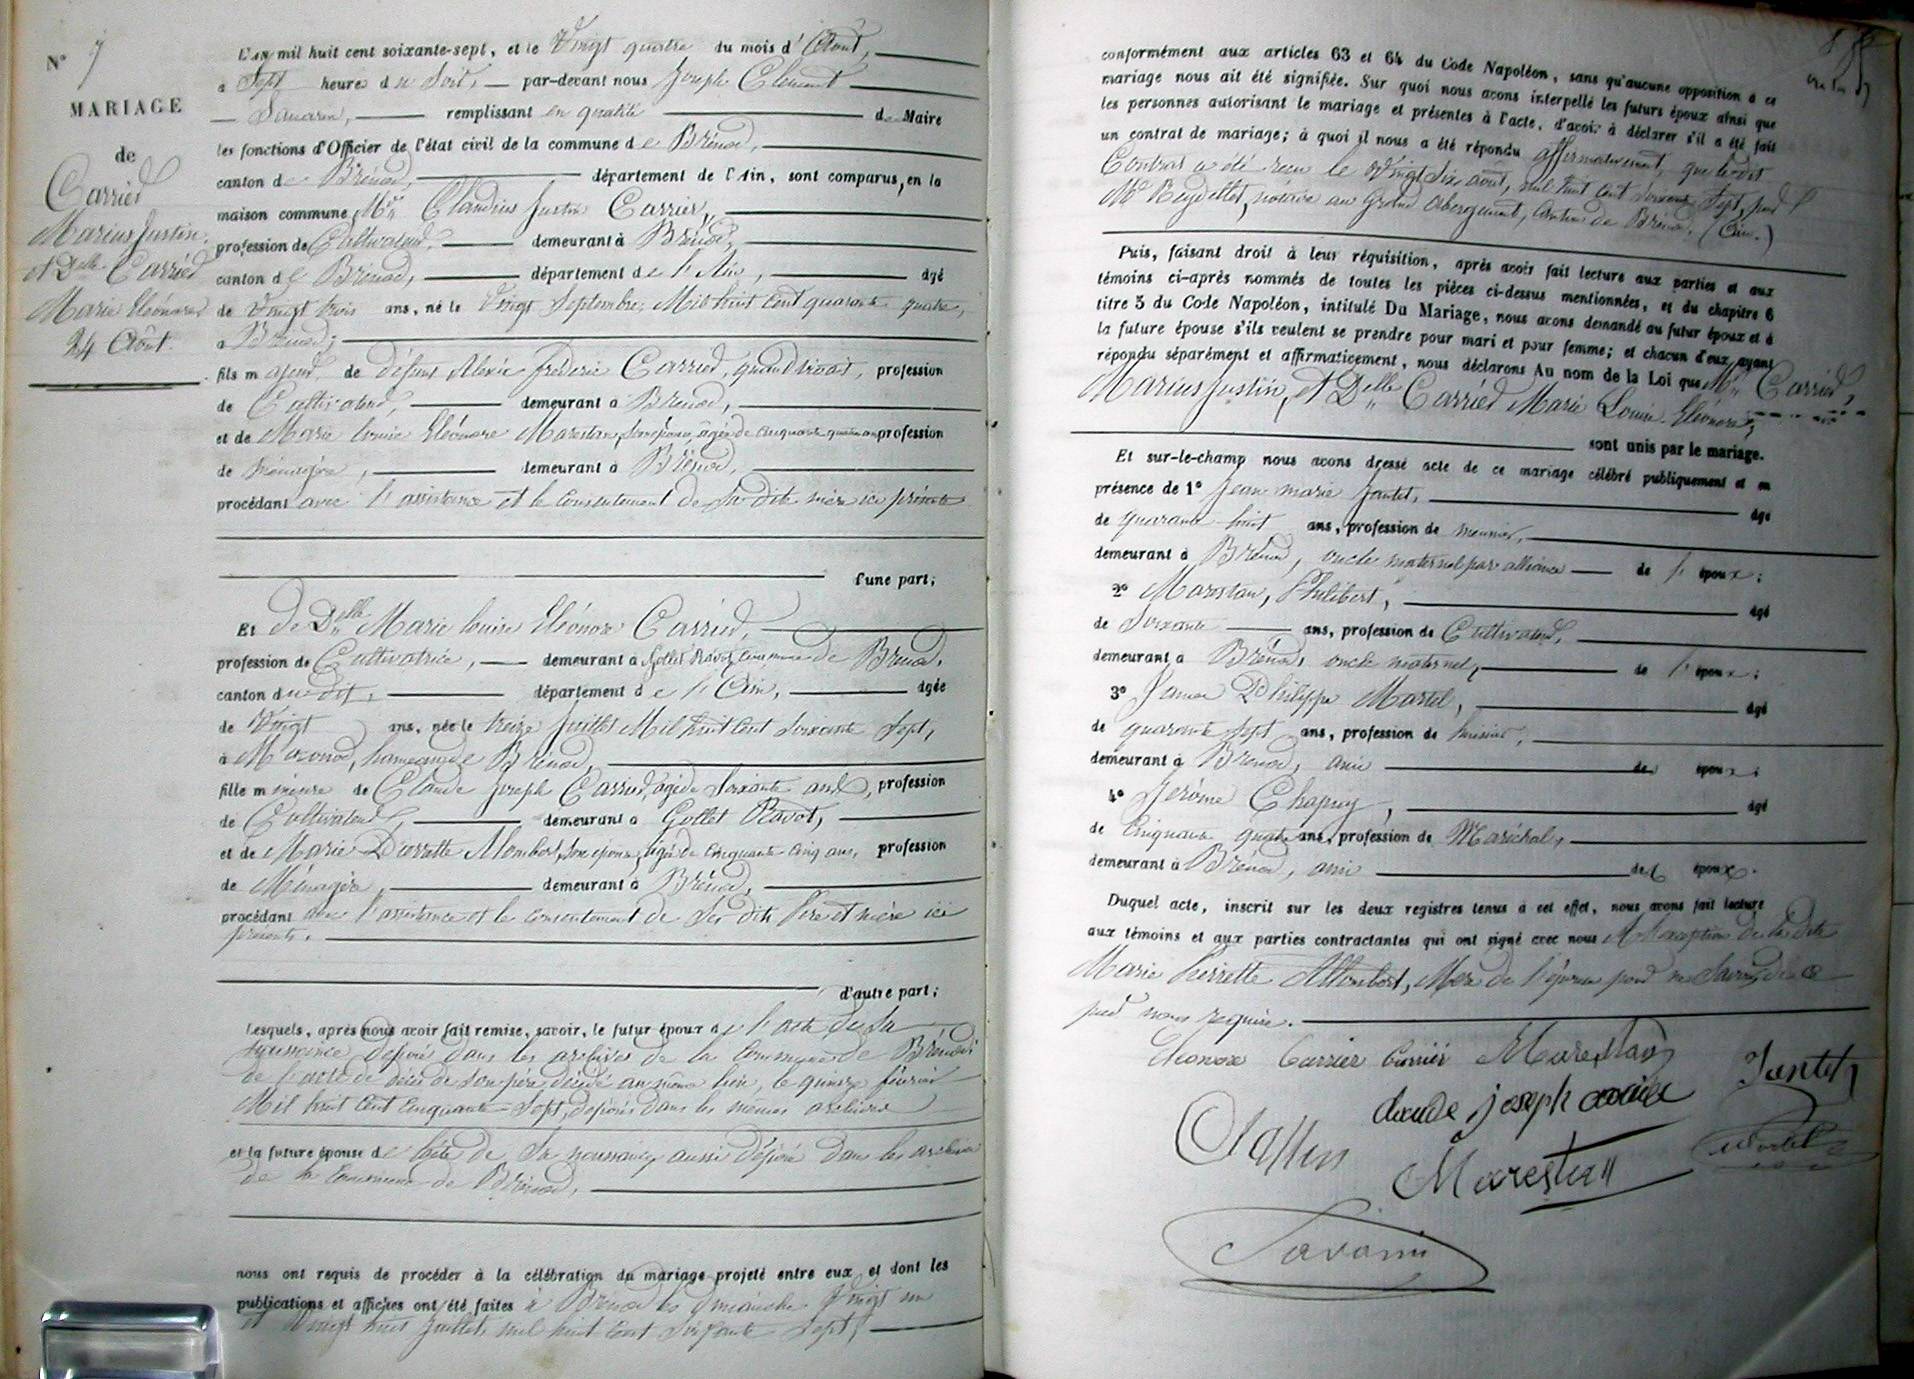 N° 7
MARIAGE
de
Carrier
Marius Justin
et Delle Carrier
Marie Eléonore
24 Août
L'AN mil huit cent soixante-sept, et le Vingt quatre du mois d'Août,
a Sept heure du Soir, par-devant nous Joseph Clément
Savarin, remplissant en qualité de Maire
les fonctions d'Officier de l'état civil de la commune de Brénod,
canton de Brénod, département de l'Ain, sont comparus, en la
maison commune, Mr Claudius Justin Carrier,
profession de Cultivateur, demeurant à Brénod,
canton de Brénod, département de l'Ain, âgé
de Vingt trois ans, né le Vingt Septembre, Mil huit Cent quarante quatre,
a Brénod,
fils majeur de défunt Alexis frédéric Carrier, quand vivait, profession
de Cultivateur, demeurant à Brénod,
et de Marie Louise Eléonore Marestan, son épouse, âgée de Cinquante quatre ans profession
de ménagère, demeurant à Brénod,
procédant avec l'assistance et le Consentement de Sa dite mère ici présente
d'une part;
Et de Delle Marie Louise Eléonore Carrier,
profession de Cultivatrice, demeurant à Gollet Ravot, Commune de Brénod,
canton du dit, département de l'Ain, âgée
de Vingt ans, née le treize Juillet Mil huit Cent Soixante Sept,
à hameau de Brénod,
fille mineure de Claude Joseph Carrier, âgé de Soixante ans, profession
de Cultivateur, demeurant a Gollet Ravot,
et de Marie son épouse, âgée de Cinquante Cinq ans, profession
de Ménagère, demeurant à Brénod,
procédant avec l'assistance et le Consentement de Ses dits Père et mère ici
présents.
d'autre part;
Lesquels, après nous avoir fait remise, savoir, le futur époux de l'acte de Sa
naissance, déposé dans les archives de la Commune de Brénod,
de l'acte de décès de Son père décédé au même lieu, le quinze février
Mil huit Cent Cinquante Sept, déposés dans les mêmes archives
et la future épouse de l'acte de Sa naissance, aussi déposé dans les archives
de la Commune de Brénod,
nous ont requis de procéder à la célébration du mariage projeté entre eux et dont les
publications et affiches ont été faites à Brénod les dimanches Vingt un
et Vingt huit Juillet, mil huit Cent Soixante Sept,
conformément aux articles 63 et 64 du Code Napoléon, sans qu'aucune opposition à ce
mariage nous ait été signifiée. Sur quoi nous avons interpellé les futurs époux ainsi que
les personnes autorisant le mariage et présentes à l'acte, d'avoir à déclarer s'il a été fait
un contrat de mariage; à quoi il nous a été répondu affirmativement, que ledit
Contrat a été reçu le Vingt Six août, mil huit Cent Soixante Sept, par
Me Reydellet, notaire au Grand Abergement, Canton de Brénod, (Ain.)
Puis, faisant droit à leur réquisition, après avoir fait lecture aux parties et aux
témoins ci-après nommés de toutes les pièces ci-dessus mentionnées, et du chapitre 6
titre 5 du Code Napoléon, intitulé Du Mariage, nous avons demandé au futur époux et à
la future épouse s'ils veulent se prendre pour mari et pour femme; et chacun d'eux ayant
répondu séparément et affirmativement, nous déclarons Au nom de la Loi que Mr Carrier,
Marius Justin, et Delle Carrier Marie Louise Eléonore,
sont unis par le mariage.
Et sur-le-champ nous avons dressé acte de ce mariage célébré publiquement et en
présence de 1° Jean marie Jantet, âgé
de quarante huit ans, profession de meunier,
demeurant à Brénod, oncle maternel par alliance de l'époux;
2° Marestan, Philibert, âgé
de Soixante ans, profession de Cultivateur,
demeurant a Brénod, oncle maternel, de l'époux;
3° Philippe Martel, âgé
de quarante sept ans, profession de huissier,
demeurant à Brénod, ami de époux;
4° Jérôme Chapuy, âgé
de Cinquante quatre ans, profession de Maréchal,
demeurant à Brénod, ami de époux.
Duquel acte, inscrit sur les deux registres tenus à cet effet, nous avons fait lecture
aux témoins et aux parties contractantes qui ont signé avec nous à l'exception de la dite
Marie Allombert, Mère de l'épouse pour ne Savoir de ce
par nous requise.
Eléonore Carrier Carrier Marestan Jantet
Claude joseph carrier
Marestan
Savarin